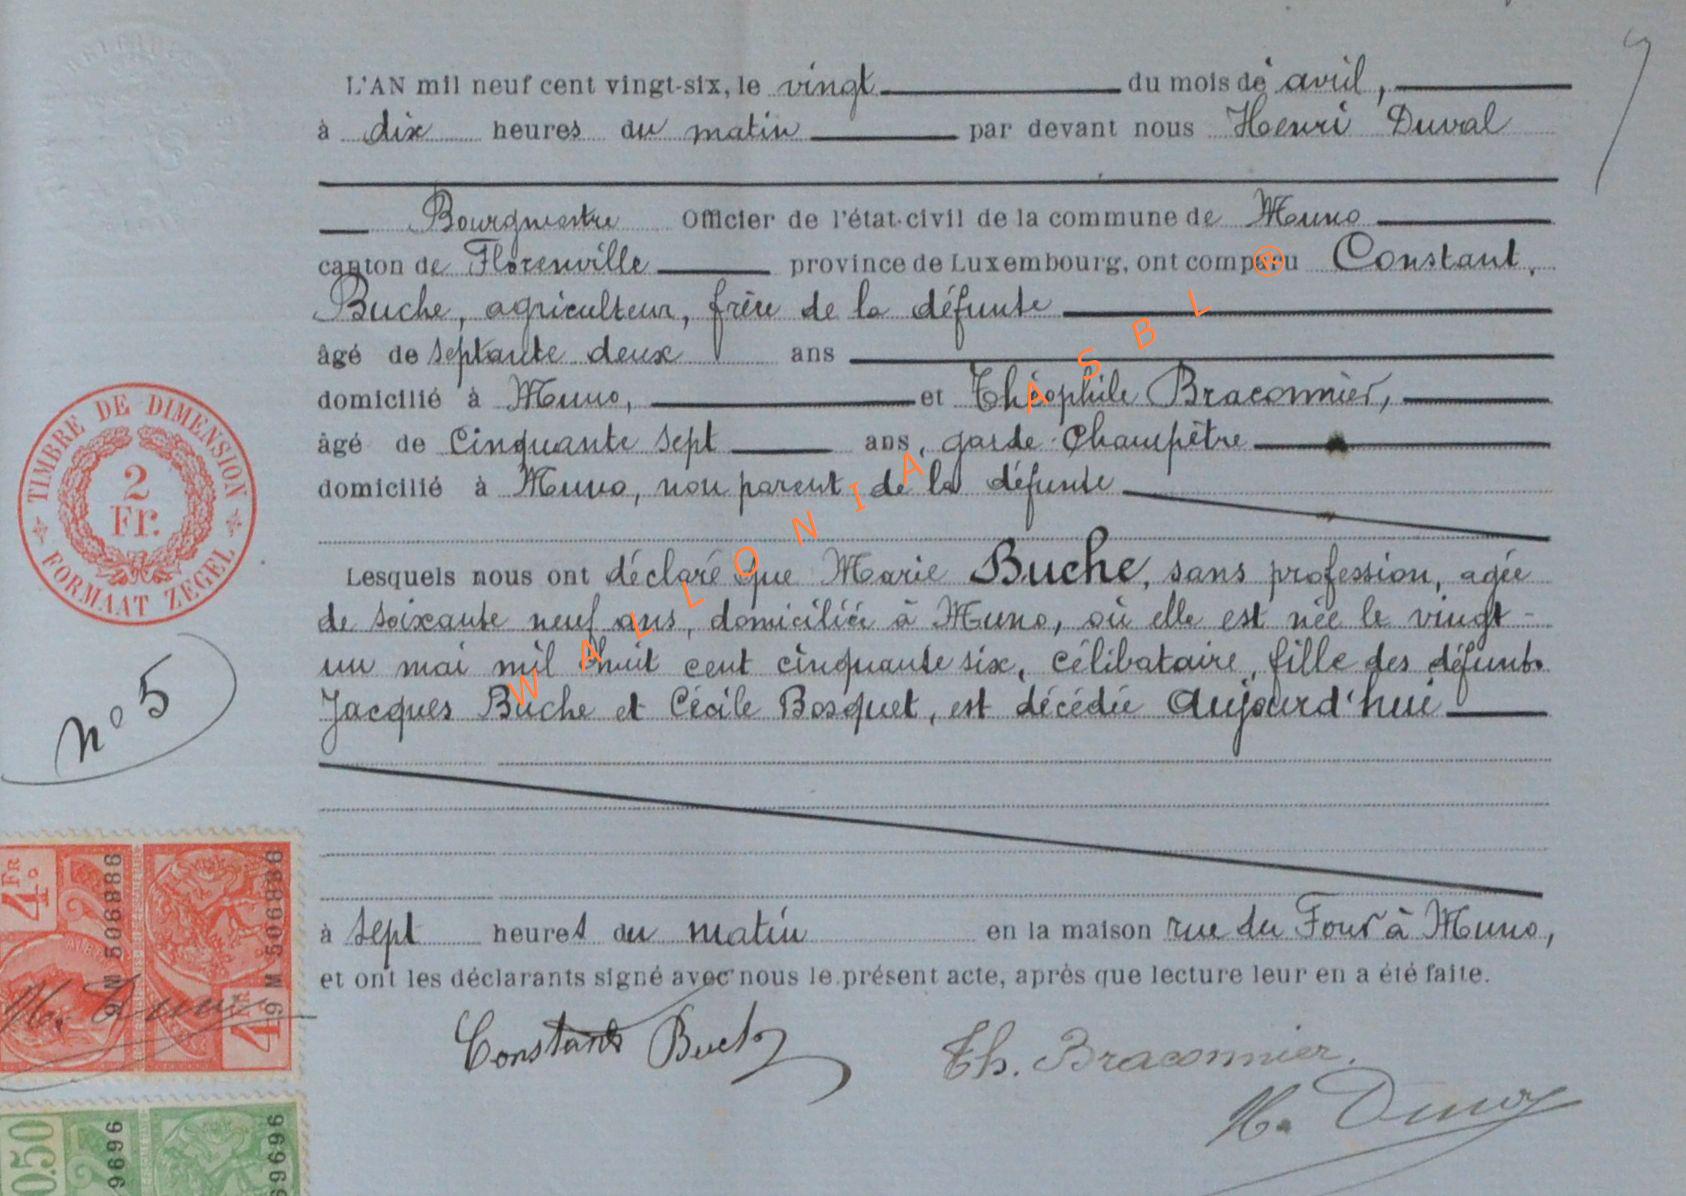 L'AN mil neuf cent vingt-six, le vingt du mois de avril,
à dix heures du matin par devant nous Henri Duval
Bourgmestre Officier de l'état-civil de la commune de Muno
canton de Florenville province de Luxembourg, ont comparu Constant
Buche, agriculteur, frère de la défunte
âgé de septante deux ans
domicilié à Muno, et Théophile Braconnier,
âgé de cinquante sept ans, garde-champêtre
domicilié à Muno, non parent de la défunte
Lesquels nous ont déclaré que Marie Buche, sans profession, agée
de soixante neuf ans, domiciliée à Muno, où elle est née le vingt-
un mai mil huit cent cinquante six, célibataire, fille des défunts
Jacques Buche et Cécile Bosquet, est décédée aujourd'hui
à sept heures du matin en la maison rue du Four à Muno,
et ont les déclarants signé avec nous le présent acte, après que lecture leur en a été faite.
Constant Buche Th. Braconnier.
H. Duval
TIMBRE DE DIMENSION
2
Fr.
FORMAAT ZEGEL
n° 5
4 FR
9 M 506886
4 FR
9 M 506886
H. Duval
0.50
69696
WALLONIA ASBL ®